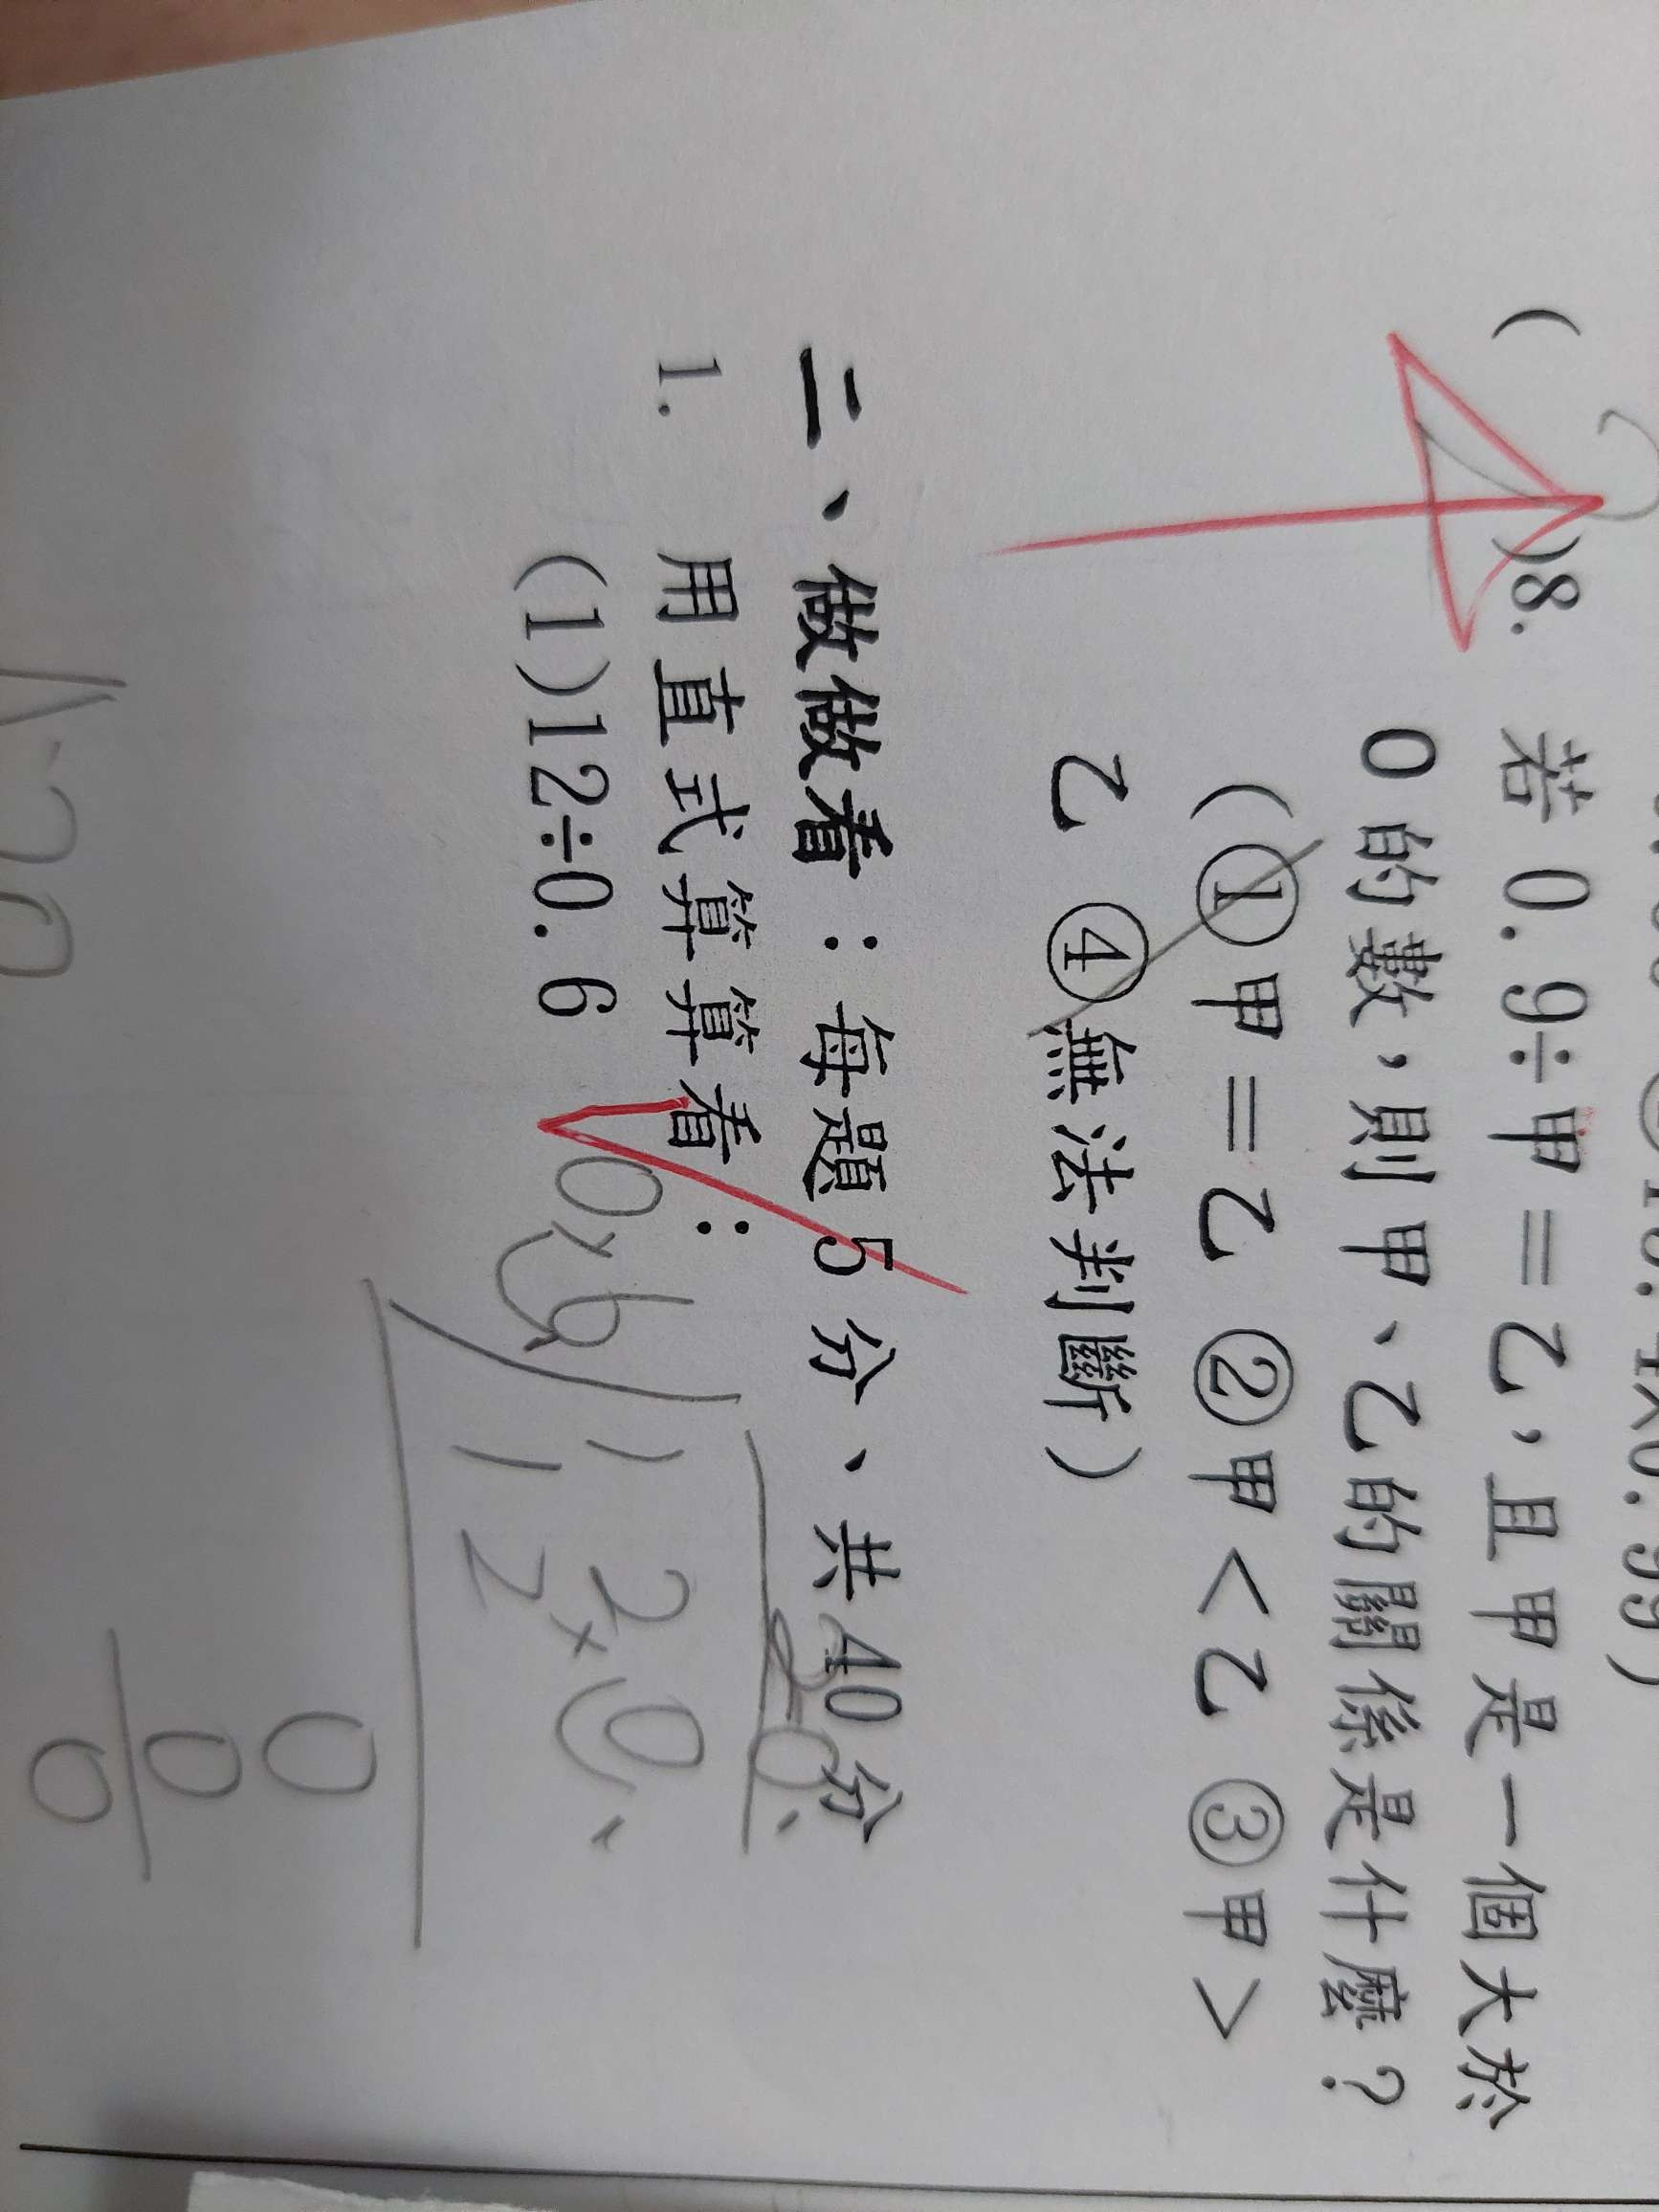 (2)8. 若 0.9÷甲＝乙，且甲是一個大於
0 的數，則甲、乙的關係是什麼？
(①甲＝乙 ②甲＜乙 ③甲＞
乙 ④無法判斷)
二、做做看：每題 5 分、共 40 分
1. 用直式算算看：
(1)12÷0.6
20
0.6 120
12
0
0
0